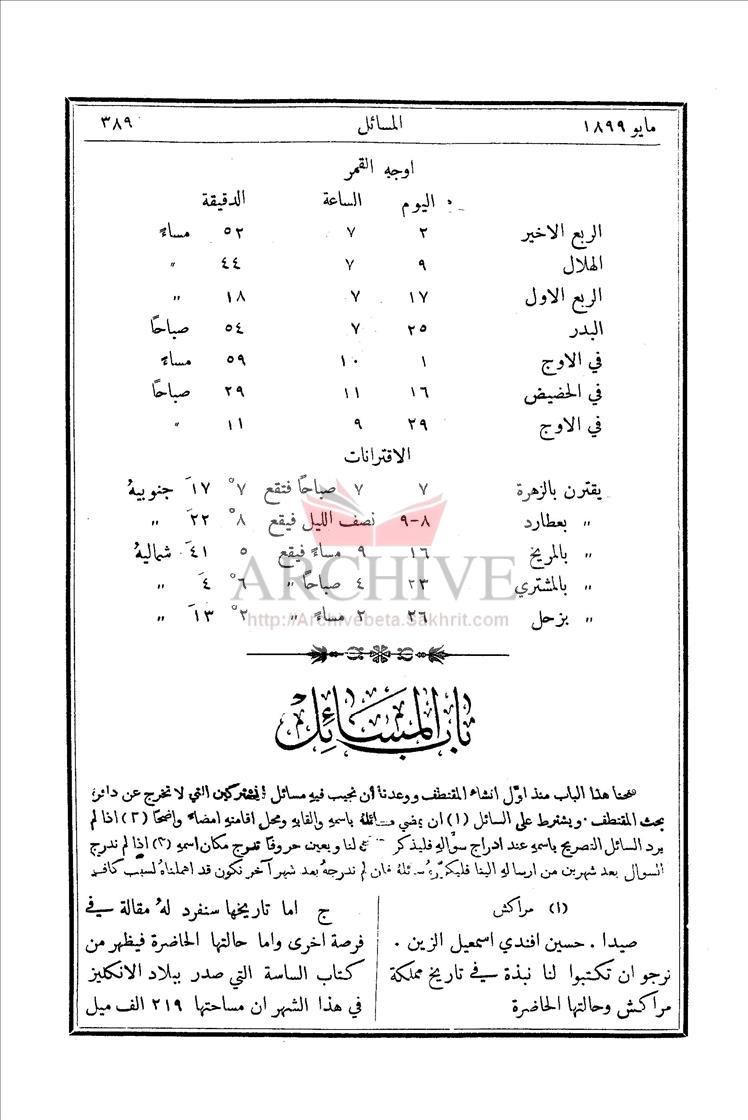 مايو ١٨٩٩ المسائل ٣٨٩
اوجه القمر
اليوم الساعة الدقيقة
الربع الاخير ٢ ٧ ٥٢ مساءً
الهلال ٩ ٧ ٤٤ "
الربع الاول ١٧ ٧ ١٨ "
البدر ٢٥ ٧ ٥٤ صباحًا
في الاوج ١ ١٠ ٥٩ مساءً
في الحضيض ١٦ ١١ ٢٩ صباحًا
في الاوج ٢٩ ٩ ١١ "
الاقترانات
يقترن بالزهرة ٧ ٧ صباحًا فتقع ٧° ١٧َ جنوبيهُ
" بعطارد ٨-٩ نصف الليل فيقع ٨° ٢٢َ "
" بالمريخ ١٦ ٩ مساءً فيقع ٥ ٤١َ شماليهُ
" بالمشتري ٢٣ ٤ صباحًا " ٦° ٤َ "
" بزحل ٢٦ ٢ مساءً " ٢° ١٣َ "
ARCHIVE
http://Archivebeta.Sakhrit.com
باب المسائل
فتحنا هذا الباب منذ اول انشاء المقتطف ووعدنا أن نجيب فيه مسائل المشتركين التي لا تخرج عن دائرة
بحث المقتطف. ويشترط على السائل (١) ان يمضي مسائله باسمه والقابه ومحل اقامته امضاء واضحًا (٢) اذا لم
يرد السائل التصريح باسمه عند ادراج سؤاله فليذكر لنا ويعين حروفًا تدرج مكان اسمه (٣) اذا لم ندرج
السوال بعد شهرين من ارساله الينا فليكرّره سائله فان لم ندرجه بعد شهر آخر نكون قد اهملناه لسبب كافٍ
(١) مراكش
صيدا. حسين افندي اسمعيل الزين.
نرجو ان تكتبوا لنا نبذة في تاريخ مملكة
مراكش وحالتها الحاضرة
ج اما تاريخها سنفرد لهُ مقالة في
فرصة اخرى واما حالتها الحاضرة فيظهر من
كتاب الساسة التي صدر ببلاد الانكليز
في هذا الشهر ان مساحتها ٢١٩ الف ميل